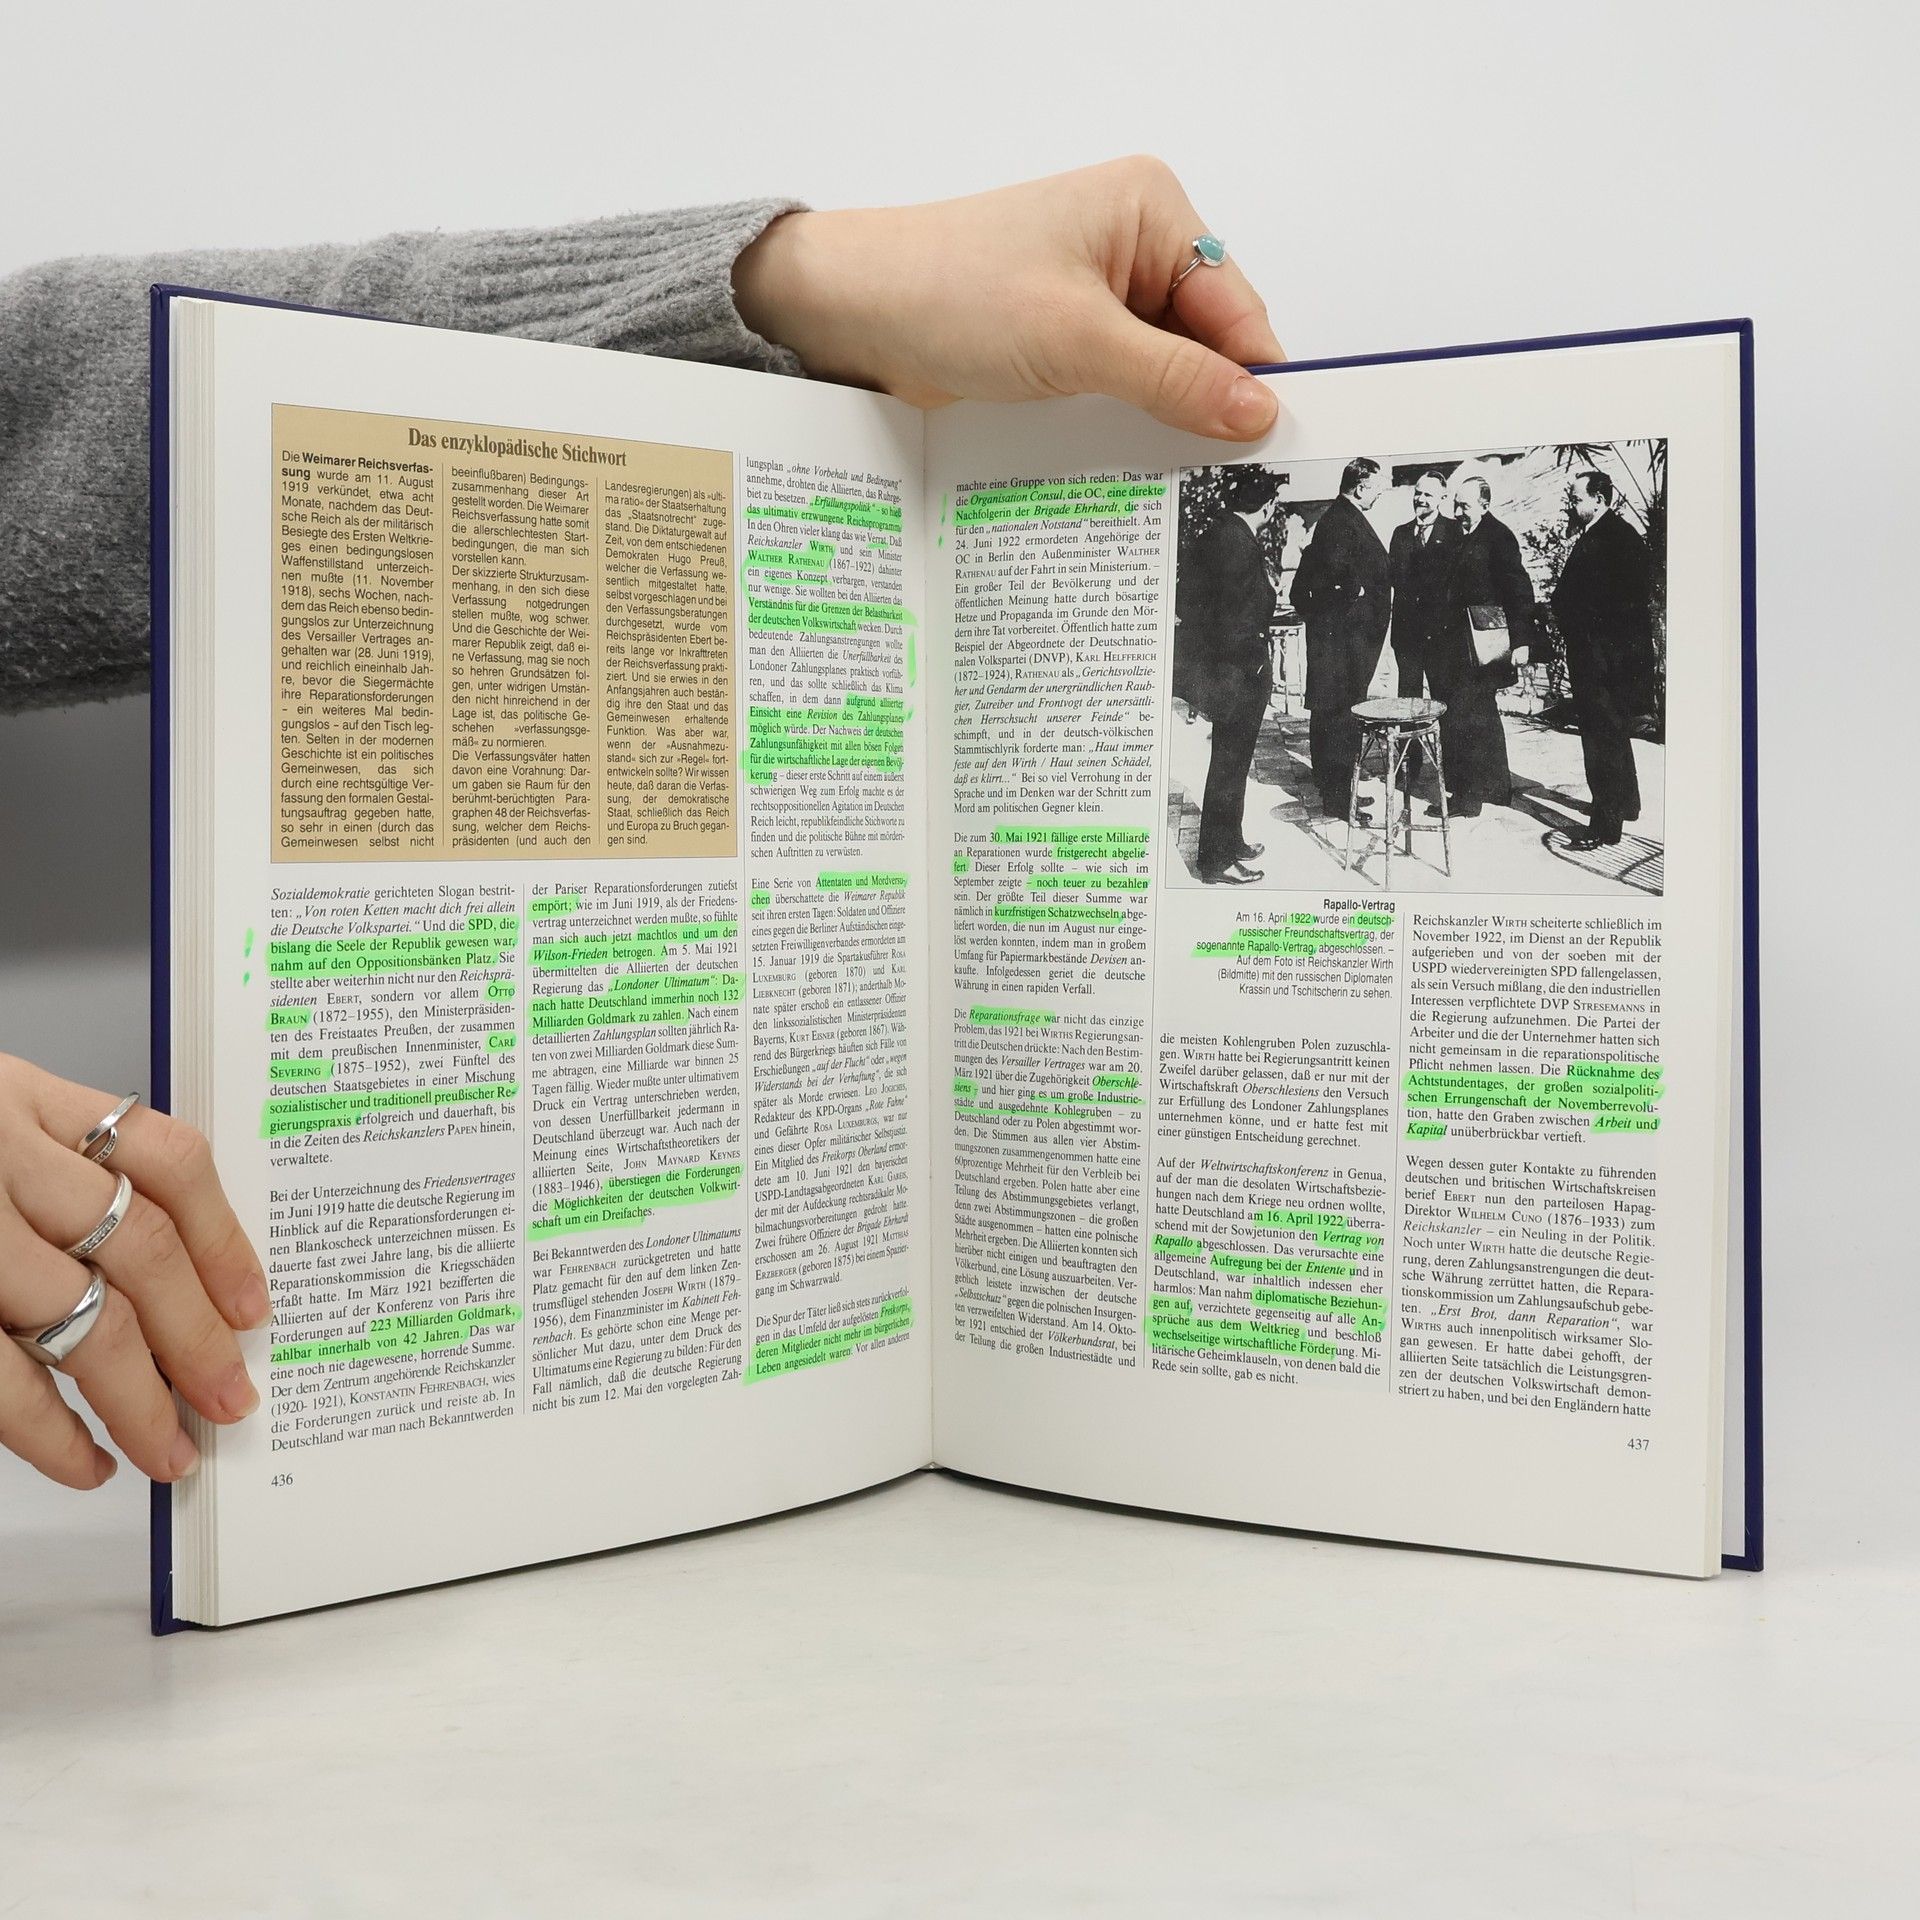 Das enzyklopädische Stichwort
Die Weimarer Reichsverfas-
sung wurde am 11. August
1919 verkündet, etwa acht
Monate, nachdem das Deut-
sche Reich als der militärisch
Besiegte des Ersten Weltkrie-
ges einen bedingungslosen
Waffenstillstand unterzeich-
nen mußte (11. November
1918), sechs Wochen, nach-
dem das Reich ebenso bedin-
gungslos zur Unterzeichnung
des Versailler Vertrages an-
gehalten war (28. Juni 1919),
und reichlich eineinhalb Jah-
re, bevor die Siegermächte
ihre Reparationsforderungen
– ein weiteres Mal bedin-
gungslos – auf den Tisch leg-
ten. Selten in der modernen
Geschichte ist ein politisches
Gemeinwesen, das sich
durch eine rechtsgültige Ver-
fassung den formalen Gestal-
tungsauftrag gegeben hatte,
so sehr in einen (durch das
Gemeinwesen selbst nicht
beeinflußbaren) Bedingungs-
zusammenhang dieser Art
gestellt worden. Die Weimarer
Reichsverfassung hatte somit
die allerschlechtesten Start-
bedingungen, die man sich
vorstellen kann.
Der skizzierte Strukturzusam-
menhang, in den sich diese
Verfassung notgedrungen
stellen mußte, wog schwer.
Und die Geschichte der Wei-
marer Republik zeigt, daß ei-
ne Verfassung, mag sie noch
so hehren Grundsätzen fol-
gen, unter widrigen Umstän-
den nicht hinreichend in der
Lage ist, das politische Ge-
schehen »verfassungsge-
mäß« zu normieren.
Die Verfassungsväter hatten
davon eine Vorahnung: Dar-
um gaben sie Raum für den
berühmt-berüchtigten Para-
graphen 48 der Reichsverfas-
sung, welcher dem Reichs-
präsidenten (und auch den
Landesregierungen) als »ulti-
ma ratio« der Staatserhaltung
das „Staatsnotrecht" zuge-
stand. Die Diktaturgewalt auf
Zeit, von dem entschiedenen
Demokraten Hugo Preuß,
welcher die Verfassung we-
sentlich mitgestaltet hatte,
selbst vorgeschlagen und bei
den Verfassungsberatungen
durchgesetzt, wurde vom
Reichspräsidenten Ebert be-
reits lange vor Inkrafttreten
der Reichsverfassung prakti-
ziert. Und sie erwies in den
Anfangsjahren auch bestän-
dig ihre den Staat und das
Gemeinwesen erhaltende
Funktion. Was aber war,
wenn der »Ausnahmezu-
stand« sich zur »Regel« fort-
entwickeln sollte? Wir wissen
heute, daß daran die Verfas-
sung, der demokratische
Staat, schließlich das Reich
und Europa zu Bruch gegan-
gen sind.
Sozialdemokratie gerichteten Slogan bestrit-
ten: „Von roten Ketten macht dich frei allein
die Deutsche Volkspartei." Und die SPD, die
bislang die Seele der Republik gewesen war,
nahm auf den Oppositionsbänken Platz. Sie
stellte aber weiterhin nicht nur den Reichsprä-
sidenten EBERT, sondern vor allem OTTO
BRAUN (1872–1955), den Ministerpräsiden-
ten des Freistaates Preußen, der zusammen
mit dem preußischen Innenminister, CARL
SEVERING (1875–1952), zwei Fünftel des
deutschen Staatsgebietes in einer Mischung
sozialistischer und traditionell preußischer Re-
gierungspraxis erfolgreich und dauerhaft, bis
in die Zeiten des Reichskanzlers PAPEN hinein,
verwaltete.
Bei der Unterzeichnung des Friedensvertrages
im Juni 1919 hatte die deutsche Regierung im
Hinblick auf die Reparationsforderungen ei-
nen Blankoscheck unterzeichnen müssen. Es
dauerte fast zwei Jahre lang, bis die alliierte
Reparationskommission die Kriegsschäden
erfaßt hatte. Im März 1921 bezifferten die
Alliierten auf der Konferenz von Paris ihre
Forderungen auf 223 Milliarden Goldmark,
zahlbar innerhalb von 42 Jahren. Das war
eine noch nie dagewesene, horrende Summe.
Der dem Zentrum angehörende Reichskanzler
(1920- 1921), KONSTANTIN FEHRENBACH, wies
die Forderungen zurück und reiste ab. In
Deutschland war man nach Bekanntwerden
der Pariser Reparationsforderungen zutiefst
empört; wie im Juni 1919, als der Friedens-
vertrag unterzeichnet werden mußte, so fühlte
man sich auch jetzt machtlos und um den
Wilson-Frieden betrogen. Am 5. Mai 1921
übermittelten die Alliierten der deutschen
Regierung das „Londoner Ultimatum": Da-
nach hatte Deutschland immerhin noch 132
Milliarden Goldmark zu zahlen. Nach einem
detaillierten Zahlungsplan sollten jährlich Ra-
ten von zwei Milliarden Goldmark diese Sum-
me abtragen, eine Milliarde war binnen 25
Tagen fällig. Wieder mußte unter ultimativem
Druck ein Vertrag unterschrieben werden,
von dessen Unerfüllbarkeit jedermann in
Deutschland überzeugt war. Auch nach der
Meinung eines Wirtschaftstheoretikers der
alliierten Seite, JOHN MAYNARD KEYNES
(1883–1946), überstiegen die Forderungen
die Möglichkeiten der deutschen Volkwirt-
schaft um ein Dreifaches.
Bei Bekanntwerden des Londoner Ultimatums
war FEHRENBACH zurückgetreten und hatte
Platz gemacht für den auf dem linken Zen-
trumsflügel stehenden JOSEPH WIRTH (1879–
1956), dem Finanzminister im Kabinett Feh-
renbach. Es gehörte schon eine Menge per-
sönlicher Mut dazu, unter dem Druck des
Ultimatums eine Regierung zu bilden: Für den
Fall nämlich, daß die deutsche Regierung
nicht bis zum 12. Mai den vorgelegten Zah-
lungsplan „ohne Vorbehalt und Bedingung"
annehme, drohten die Alliierten, das Ruhrge-
biet zu besetzen. „Erfüllungspolitik" – so hieß
das ultimativ erzwungene Reichsprogramm.
In den Ohren vieler klang das wie Verrat. Daß
Reichskanzler WIRTH und sein Minister
WALTHER RATHENAU (1867–1922) dahinter
ein eigenes Konzept verbargen, verstanden
nur wenige. Sie wollten bei den Alliierten das
Verständnis für die Grenzen der Belastbarkeit
der deutschen Volkswirtschaft wecken. Durch
bedeutende Zahlungsanstrengungen wollte
man den Alliierten die Unerfüllbarkeit des
Londoner Zahlungsplanes praktisch vorfüh-
ren, und das sollte schließlich das Klima
schaffen, in dem dann aufgrund alliierter
Einsicht eine Revision des Zahlungsplanes
möglich würde. Der Nachweis der deutschen
Zahlungsunfähigkeit mit allen bösen Folgen
für die wirtschaftliche Lage der eigenen Bevöl-
kerung – dieser erste Schritt auf einem äußerst
schwierigen Weg zum Erfolg machte es der
rechtsoppositionellen Agitation im Deutschen
Reich leicht, republikfeindliche Stichworte zu
finden und die politische Bühne mit mörderi-
schen Auftritten zu verwüsten.
Eine Serie von Attentaten und Mordversu-
chen überschattete die Weimarer Republik
seit ihren ersten Tagen: Soldaten und Offiziere
eines gegen die Berliner Aufständischen einge-
setzten Freiwilligenverbandes ermordeten am
15. Januar 1919 die Spartakusführer ROSA
LUXEMBURG (geboren 1870) und KARL
LIEBKNECHT (geboren 1871); anderthalb Mo-
nate später erschoß ein entlassener Offizier
den linkssozialistischen Ministerpräsidenten
Bayerns, KURT EISNER (geboren 1867). Wäh-
rend des Bürgerkriegs häuften sich Fälle von
Erschießungen „auf der Flucht" oder „wegen
Widerstands bei der Verhaftung", die sich
später als Morde erwiesen. LEO JOGICHES,
Redakteur des KPD-Organs „Rote Fahne"
und Gefährte ROSA LUXEMBURGS, war nur
eines dieser Opfer militärischer Selbstjustiz.
Ein Mitglied des Freikorps Oberland ermor-
dete am 10. Juni 1921 den bayerischen
USPD-Landtagsabgeordneten KARL GAREIS,
der mit der Aufdeckung rechtsradikaler Mo-
bilmachungsvorbereitungen gedroht hatte.
Zwei frühere Offiziere der Brigade Ehrhardt
erschossen am 26. August 1921 MATTHIAS
ERZBERGER (geboren 1875) bei einem Spazier-
gang im Schwarzwald.
Die Spur der Täter ließ sich stets zurückverfol-
gen in das Umfeld der aufgelösten Freikorps,
deren Mitglieder nicht mehr im bürgerlichen
Leben angesiedelt waren. Vor allen anderen
436
machte eine Gruppe von sich reden: Das war
die Organisation Consul, die OC, eine direkte
Nachfolgerin der Brigade Ehrhardt, die sich
für den „nationalen Notstand" bereithielt. Am
24. Juni 1922 ermordeten Angehörige der
OC in Berlin den Außenminister WALTHER
RATHENAU auf der Fahrt in sein Ministerium. –
Ein großer Teil der Bevölkerung und der
öffentlichen Meinung hatte durch bösartige
Hetze und Propaganda im Grunde den Mör-
dern ihre Tat vorbereitet. Öffentlich hatte zum
Beispiel der Abgeordnete der Deutschnatio-
nalen Volkspartei (DNVP), KARL HELFFERICH
(1872–1924), RATHENAU als „Gerichtsvollzie-
her und Gendarm der unergründlichen Raub-
gier, Zutreiber und Frontvogt der unersättli-
chen Herrschsucht unserer Feinde" be-
schimpft, und in der deutsch-völkischen
Stammtischlyrik forderte man: „Haut immer
feste auf den Wirth / Haut seinen Schädel,
daß es klirrt..." Bei so viel Verrohung in der
Sprache und im Denken war der Schritt zum
Mord am politischen Gegner klein.
Die zum 30. Mai 1921 fällige erste Milliarde
an Reparationen wurde fristgerecht abgelie-
fert. Dieser Erfolg sollte – wie sich im
September zeigte – noch teuer zu bezahlen
sein. Der größte Teil dieser Summe war
nämlich in kurzfristigen Schatzwechseln abge-
liefert worden, die nun im August nur einge-
löst werden konnten, indem man in großem
Umfang für Papiermarkbestände Devisen an-
kaufte. Infolgedessen geriet die deutsche
Währung in einen rapiden Verfall.
Die Reparationsfrage war nicht das einzige
Problem, das 1921 bei WIRTHS Regierungsan-
tritt die Deutschen drückte: Nach den Bestim-
mungen des Versailler Vertrages war am 20.
März 1921 über die Zugehörigkeit Oberschle-
siens – und hier ging es um große Industrie-
städte und ausgedehnte Kohlegruben – zu
Deutschland oder zu Polen abgestimmt wor-
den. Die Stimmen aus allen vier Abstim-
mungszonen zusammengenommen hatte eine
60prozentige Mehrheit für den Verbleib bei
Deutschland ergeben. Polen hatte aber eine
Teilung des Abstimmungsgebietes verlangt,
denn zwei Abstimmungszonen – die großen
Städte ausgenommen – hatten eine polnische
Mehrheit ergeben. Die Alliierten konnten sich
hierüber nicht einigen und beauftragten den
Völkerbund, eine Lösung auszuarbeiten. Ver-
geblich leistete inzwischen der deutsche
„Selbstschutz" gegen die polnischen Insurgen-
ten verzweifelten Widerstand. Am 14. Okto-
ber 1921 entschied der Völkerbundsrat, bei
der Teilung die großen Industriestädte und
Rapallo-Vertrag
Am 16. April 1922 wurde ein deutsch-
russischer Freundschaftsvertrag, der
sogenannte Rapallo-Vertrag, abgeschlossen. –
Auf dem Foto ist Reichskanzler Wirth
(Bildmitte) mit den russischen Diplomaten
Krassin und Tschitscherin zu sehen.
die meisten Kohlengruben Polen zuzuschla-
gen. WIRTH hatte bei Regierungsantritt keinen
Zweifel darüber gelassen, daß er nur mit der
Wirtschaftskraft Oberschlesiens den Versuch
zur Erfüllung des Londoner Zahlungsplanes
unternehmen könne, und er hatte fest mit
einer günstigen Entscheidung gerechnet.
Auf der Weltwirtschaftskonferenz in Genua,
auf der man die desolaten Wirtschaftsbezie-
hungen nach dem Kriege neu ordnen wollte,
hatte Deutschland am 16. April 1922 überra-
schend mit der Sowjetunion den Vertrag von
Rapallo abgeschlossen. Das verursachte eine
allgemeine Aufregung bei der Entente und in
Deutschland, war inhaltlich indessen eher
harmlos: Man nahm diplomatische Beziehun-
gen auf, verzichtete gegenseitig auf alle An-
sprüche aus dem Weltkrieg und beschloß
wechselseitige wirtschaftliche Förderung. Mi-
litärische Geheimklauseln, von denen bald die
Rede sein sollte, gab es nicht.
Reichskanzler WIRTH scheiterte schließlich im
November 1922, im Dienst an der Republik
aufgerieben und von der soeben mit der
USPD wiedervereinigten SPD fallengelassen,
als sein Versuch mißlang, die den industriellen
Interessen verpflichtete DVP STRESEMANNS in
die Regierung aufzunehmen. Die Partei der
Arbeiter und die der Unternehmer hatten sich
nicht gemeinsam in die reparationspolitische
Pflicht nehmen lassen. Die Rücknahme des
Achtstundentages, der großen sozialpoliti-
schen Errungenschaft der Novemberrevolu-
tion, hatte den Graben zwischen Arbeit und
Kapital unüberbrückbar vertieft.
Wegen dessen guter Kontakte zu führenden
deutschen und britischen Wirtschaftskreisen
berief EBERT nun den parteilosen Hapag-
Direktor WILHELM CUNO (1876–1933) zum
Reichskanzler – ein Neuling in der Politik.
Noch unter WIRTH hatte die deutsche Regie-
rung, deren Zahlungsanstrengungen die deut-
sche Währung zerrüttet hatten, die Repara-
tionskommission um Zahlungsaufschub gebe-
ten. „Erst Brot, dann Reparation", war
WIRTHS auch innenpolitisch wirksamer Slo-
gan gewesen. Er hatte dabei gehofft, der
alliierten Seite tatsächlich die Leistungsgren-
zen der deutschen Volkswirtschaft demon-
striert zu haben, und bei den Engländern hatte
437